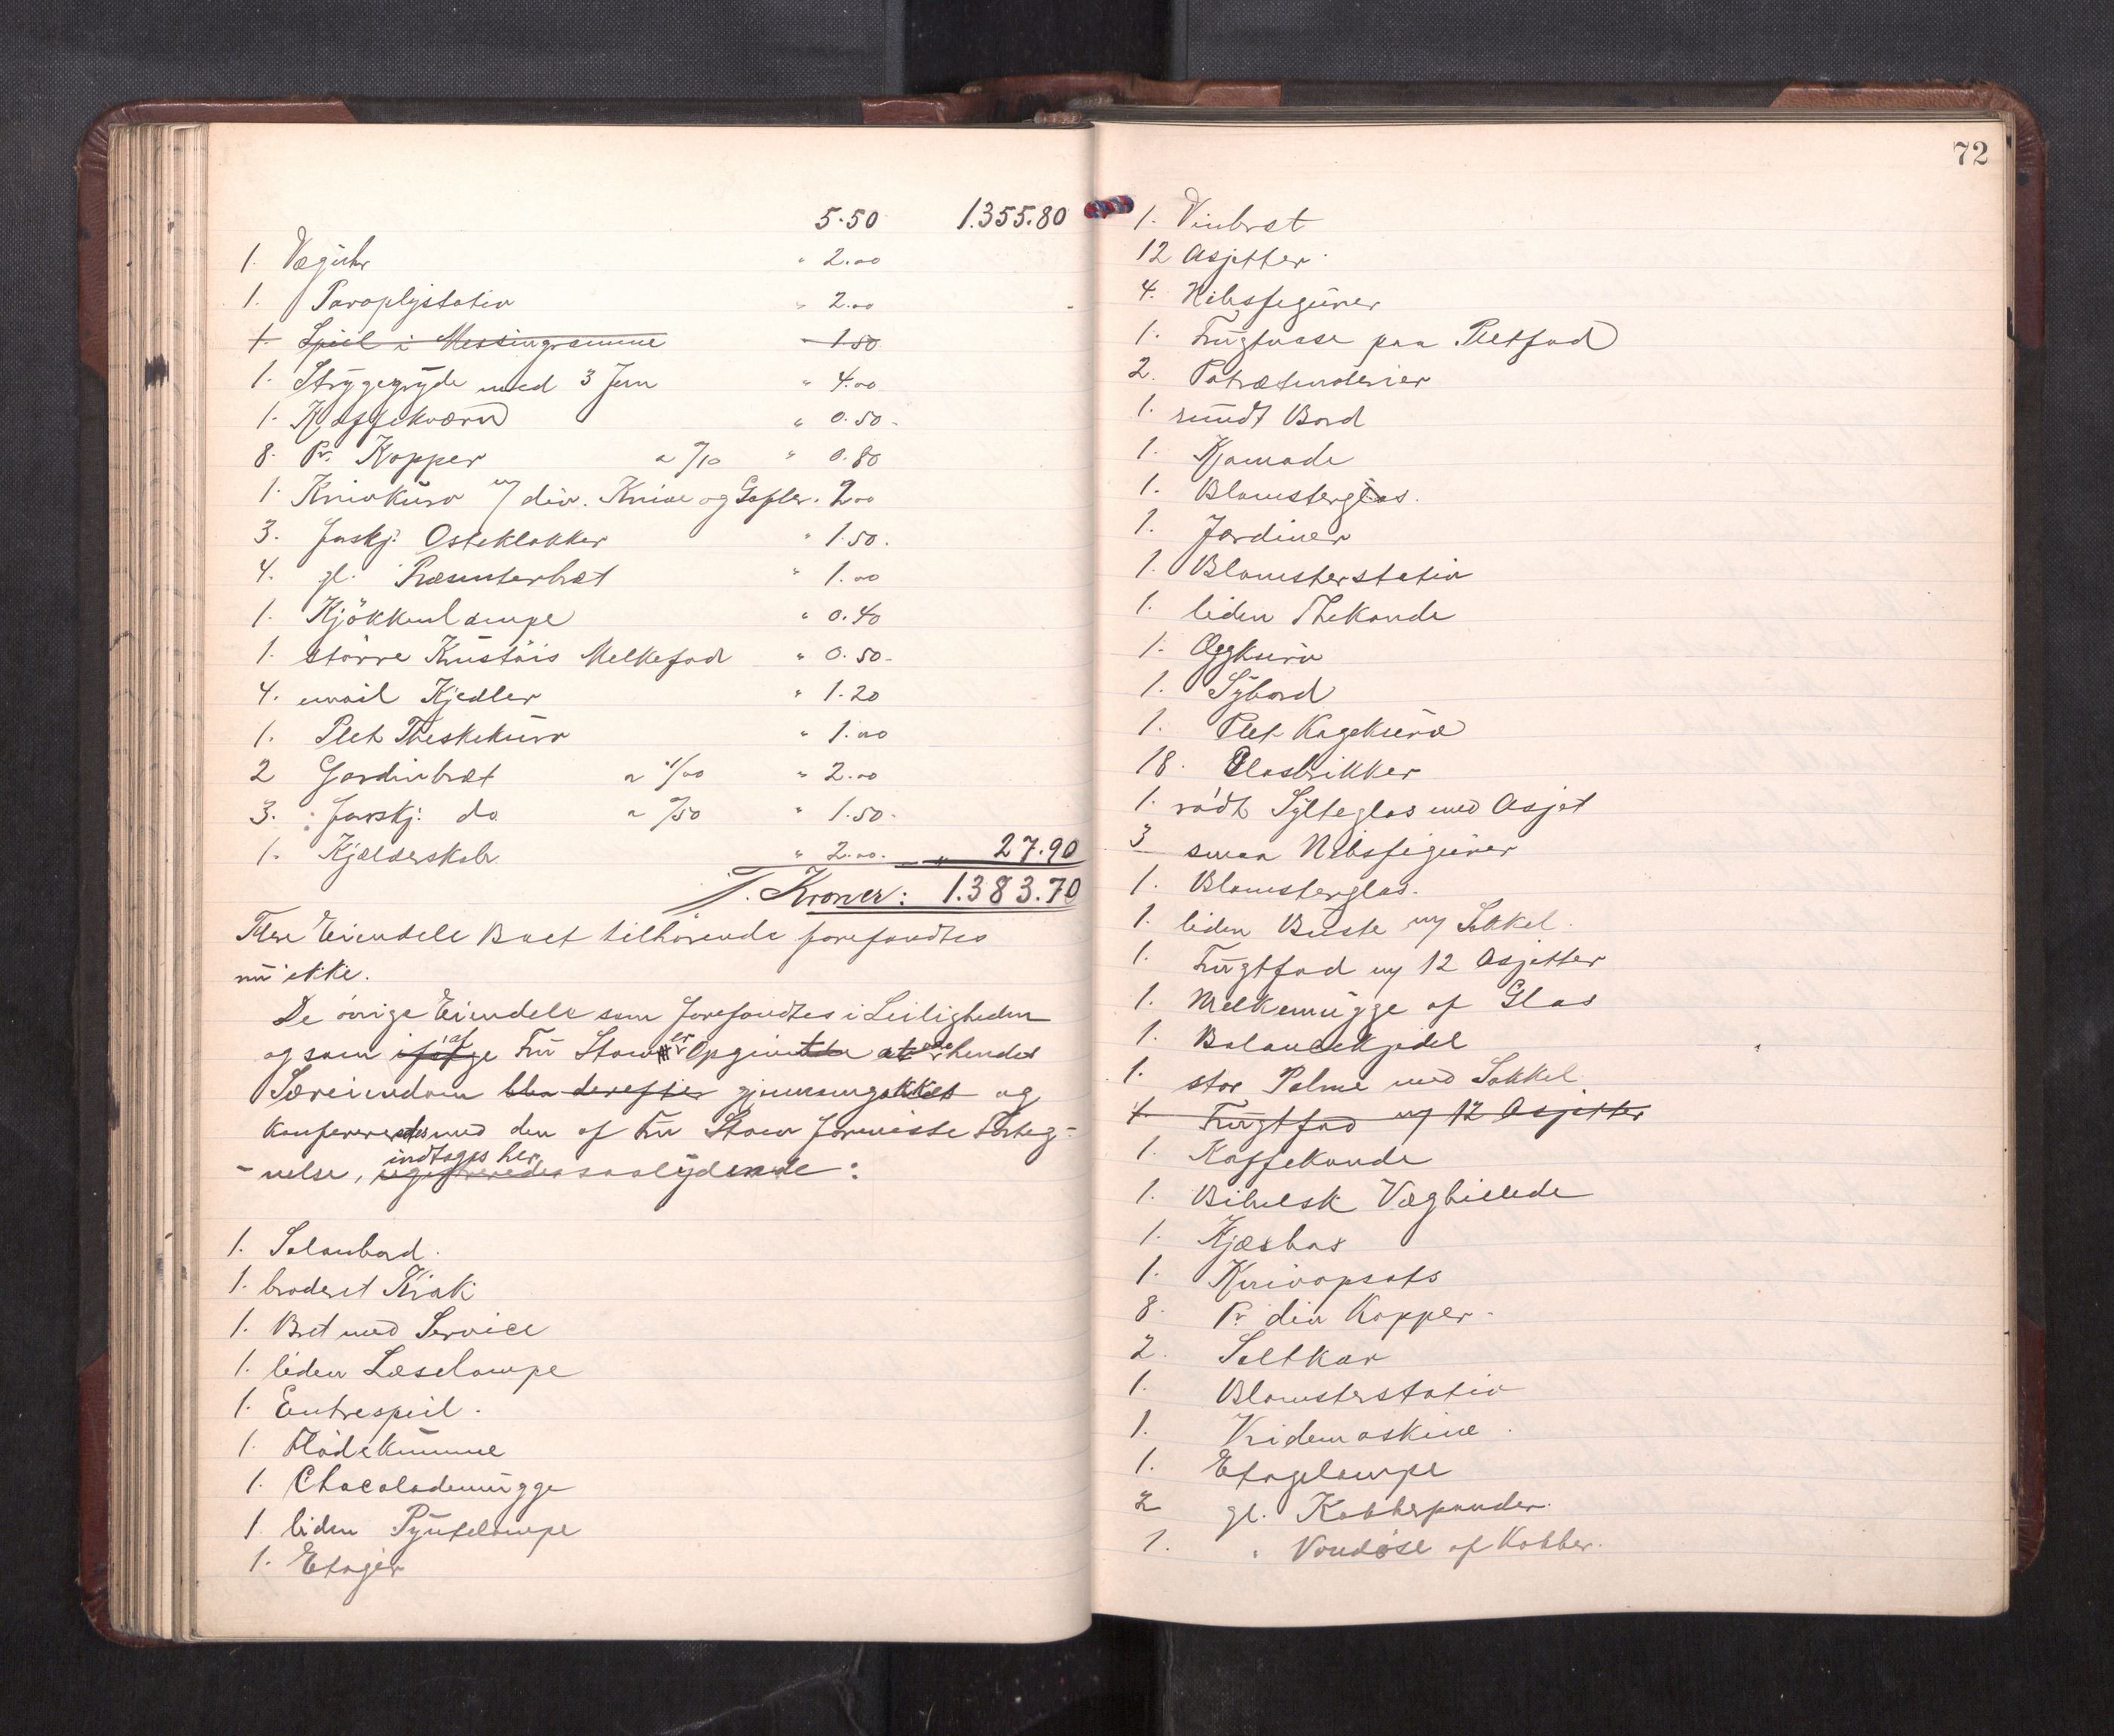 5.50 1.355.80
1. Væguhr " 2.00
1. Paraplystativ " 2.00
1. Speil i Messingramme 1.50
1. Strygegryde med 3 Jern " 4.00
1. Kaffekværn " 0.50
8. Pr. Kopper a %10 " 0.80
1. Knivkurv m/ div. Knive og Gafler. 2.00
3. forskj. Osteklokker " 1.50.
4. gl. Præsenterbræt " 1.00
1. Kjøkkenlampe " 0.40
1. større Melkefad " 0.50
4. email Kjedler " 1.20
1. Plet Theskekurv " 1.00
2 Gardinbræt a 1/00 " 2.00
3. forskj: do a %50 " 1.50.
1. Kjælderskab " 2.00. 27.90
T. Kroner: 1.383.70
Flere Eiendele Boet tilhørende forefandtes
nu ikke.
De øvrige Eiendele som forefandtes i Leiligheden
og som ifølge af Fru er Opgivende at være hendes
Særeiendom blev derefter gjennemgaaet og
konfereredes med den af Fru foreviste Forteg-
-nelse, registreredes indtages her saalydende:
1. Salonbord.
1. broderet Krak
1. Bret med Service
1. liden Læselampe
1. Entrespeil.
1. Flødekumme
1. Chocolademugge
1. liden Pyntelampe
1. Etager
72
1. Vinbret
12 Asjetter.
4. Nibsfigurer
1. Frugtvase paa Pletfad
2. Potrætmalerier
1. rundt Bord
1. Komode
1. Blomsterglas.
1. Jardiner
1. Blomsterstativ
1. liden Thekande
1. Æggkurv
1. Sybord
1. Plet Kagekurv
18. Glasbrikker
1. rødt Sylteglas med Asjet
3 smaa Nibsfigurer
1. Blomsterglas.
1. liden Buste m/ Sokkel.
1. Frugtfad m/ 12 Asjetter
1. Melkemugge af Glas
1. Balancekjedel
1. stor Palme med Sokkel.
1. Frugtfad m/ 12 Asjetter
1. Kaffekande
1. Bibelsk Vægbillede
1. Kjæsbor
1. Knivopsats
8. Pr div Kopper.
2. Saltkar
1. Blomsterstativ
1. Vridemaskine.
1. Etagelampe
2 gl. Kobberpander.
1. " Vandøse af Kobber.